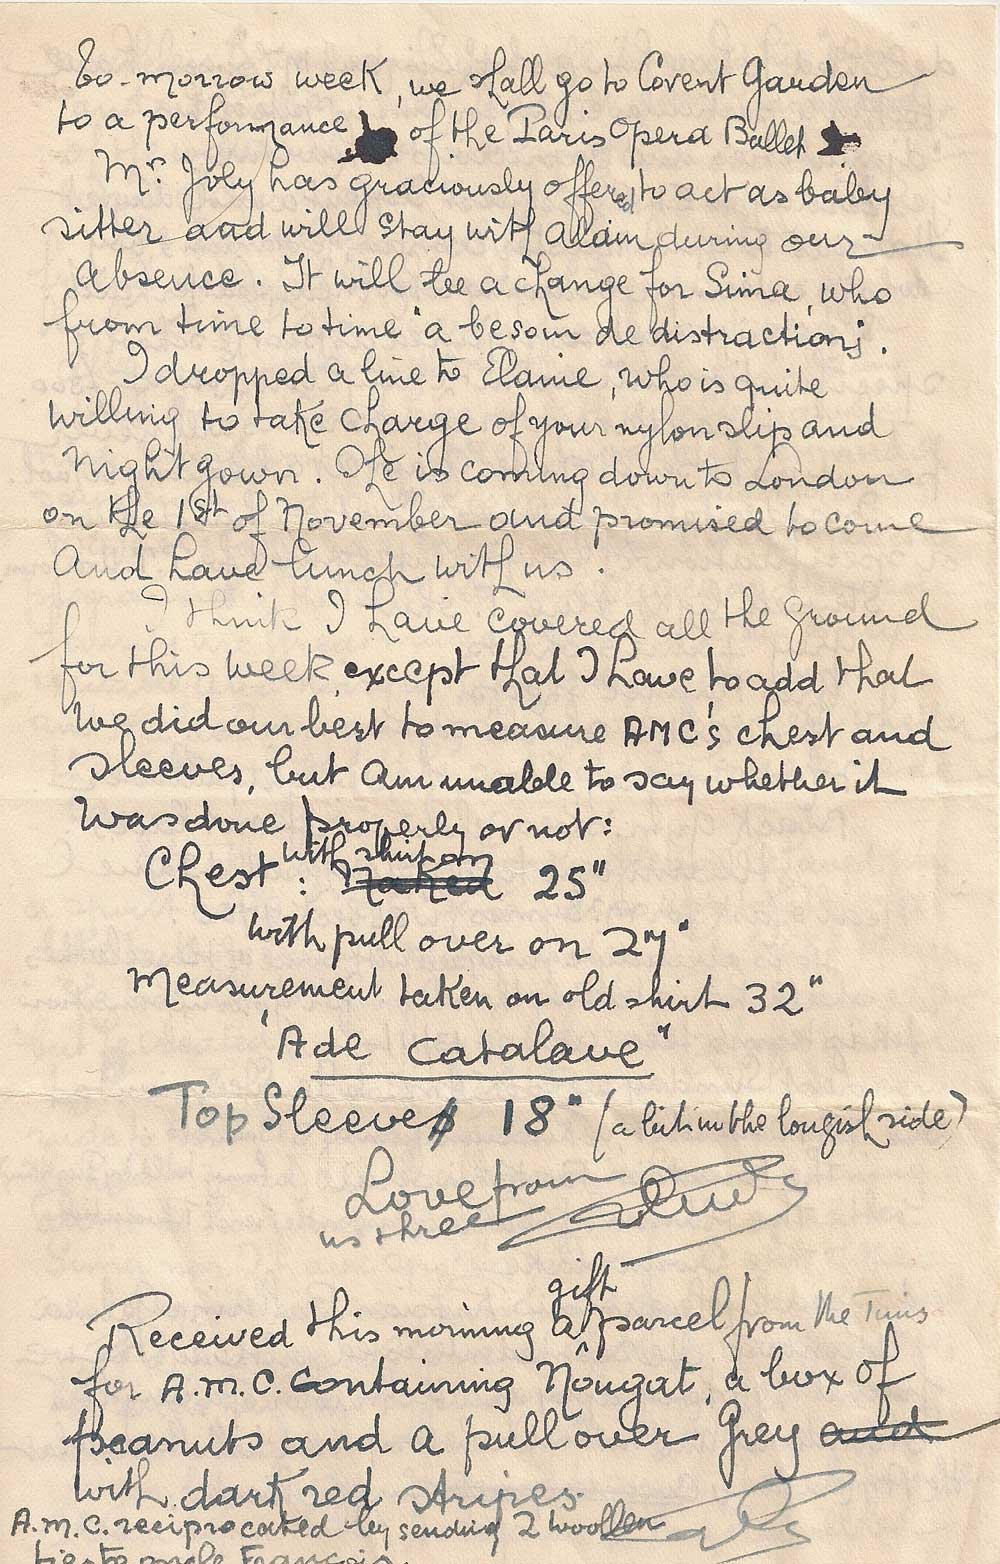 To-morrow week, we shall go to Covent Garden
to a performance of the Paris Opera Ballet
Mr. Joly has graciously offered to act as baby
sitter and will stay with Alain during our
absence. It will be a change for Sima, who
from time to time "a besoin de distractions".
I dropped a line to Elaine, who is quite
willing to take charge of your nylon slip and
Night gown. He is coming down to London
on the 1st of November and promised to come
and have lunch with us.
I think I have covered all the ground
for this week, except that I have to add that
we did our best to measure AMC's chest and
sleeves, but am unable to say whether it
was done properly or not:
with shirt on
Chest : Naked 25"
with pull over on 27"
Measurement taken on old shirt 32"
"A de Catalane"
Top Sleeves 18" (a bit in the longish side)
Love from
us three
gift
Received this morning a parcel from the Twins
for A.M.C. containing Nougat, a box of
peanuts and a pull over Grey and
with dark red stripes.
A.M.C. reciprocated by sending 2 woollen
ties to uncle François.